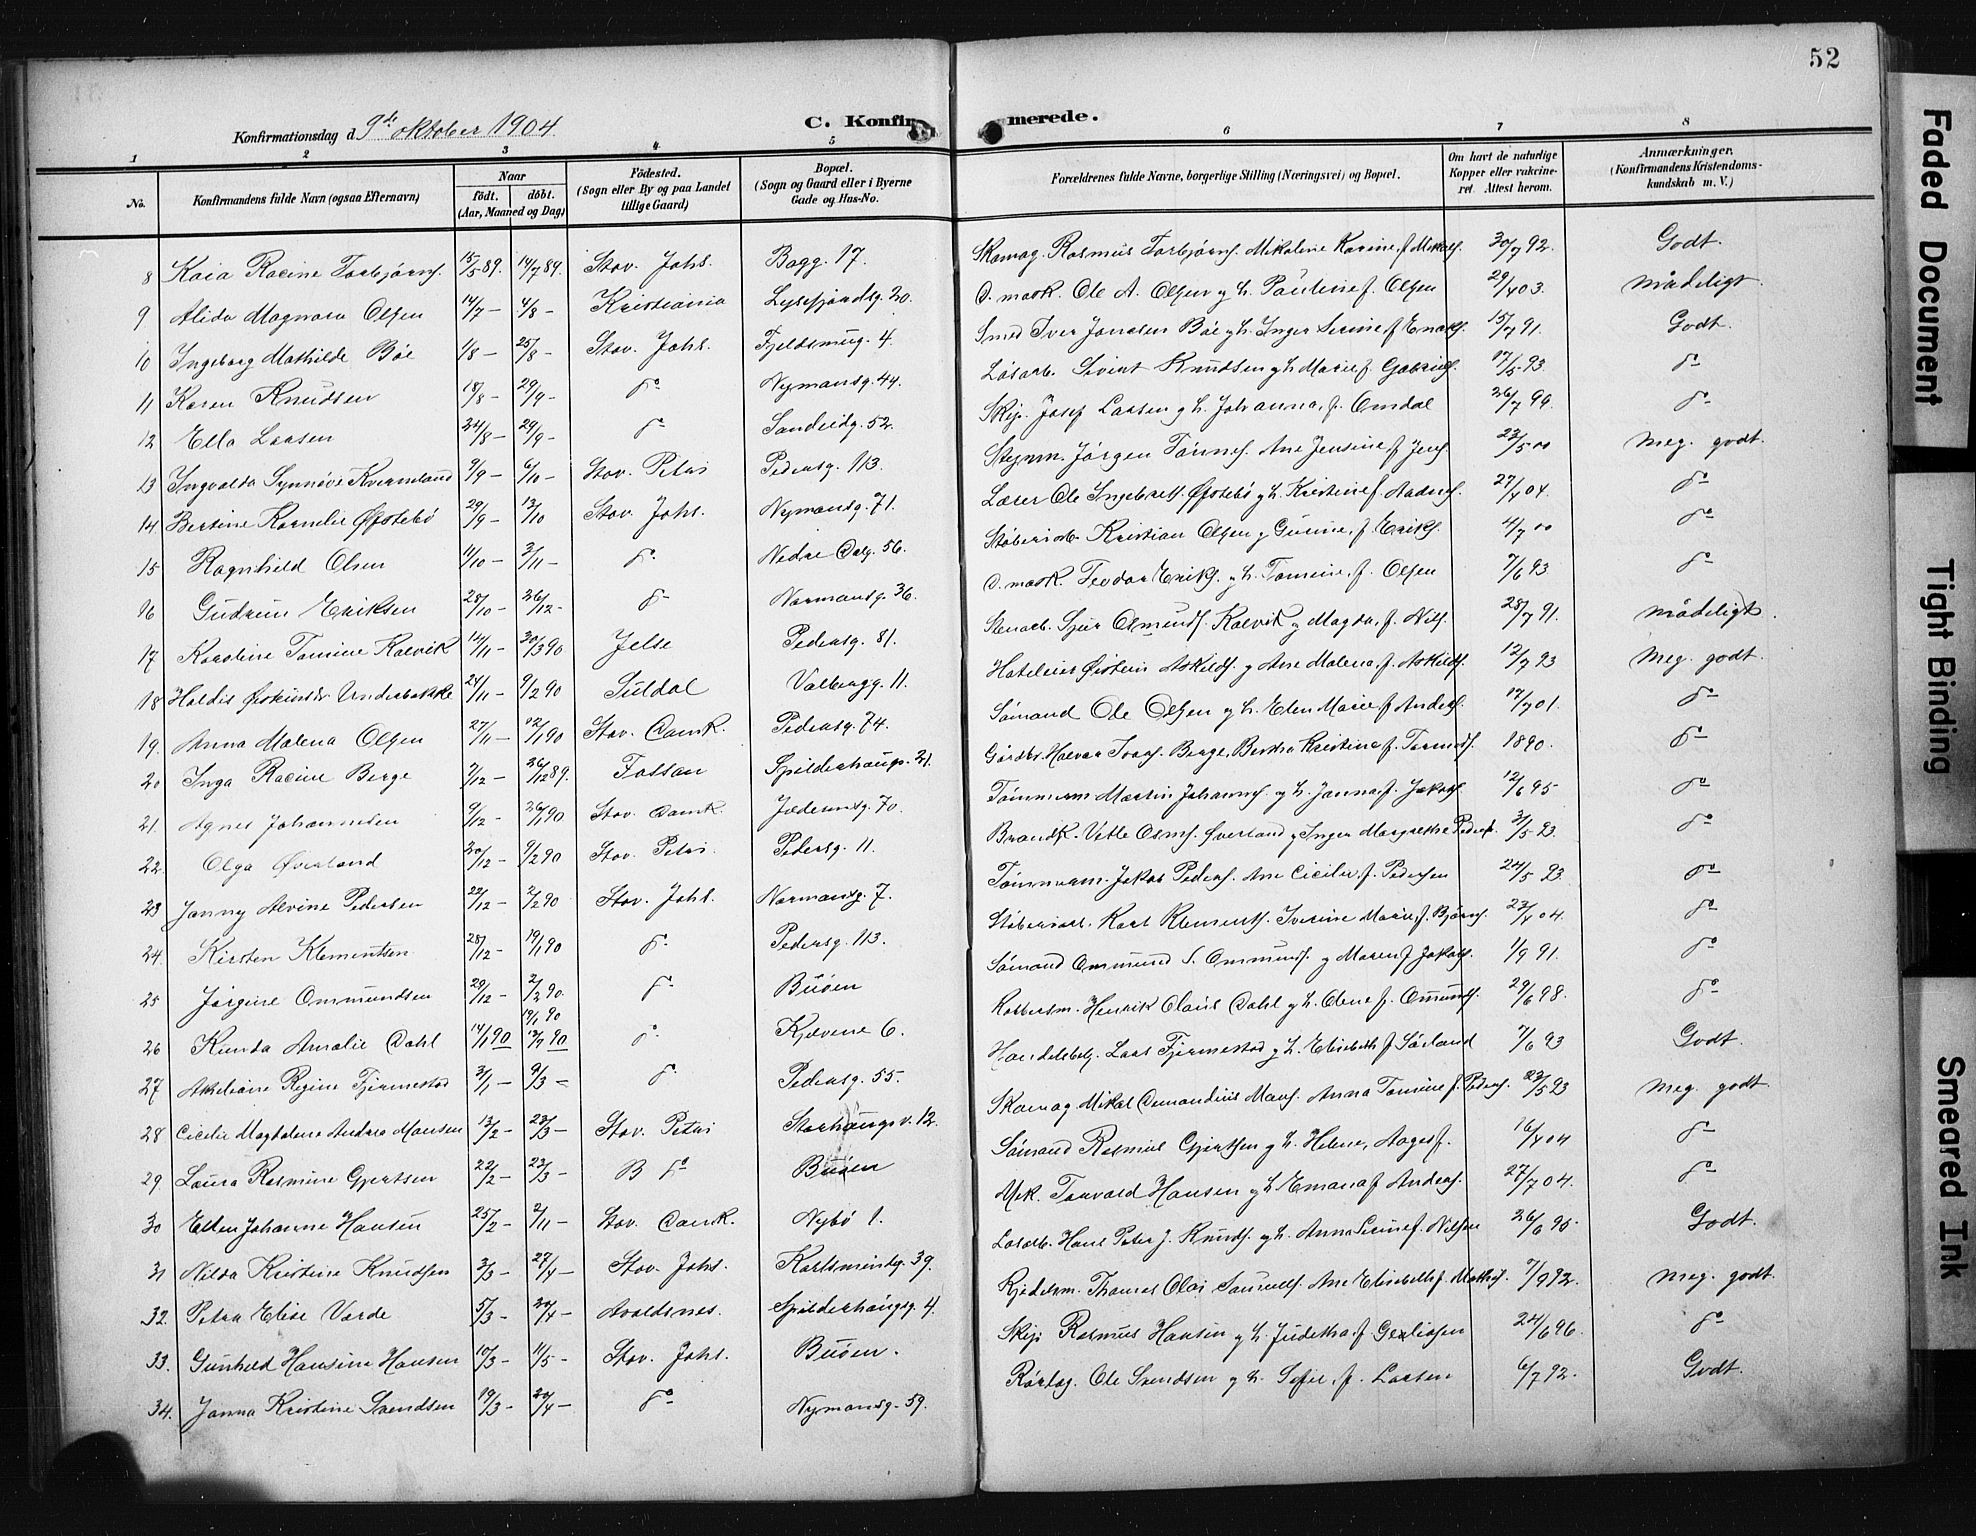 52
Konfirmationsdag d. 9de oktober 1904.
C. Konfirmerede.
1 2 3 4 5 6 7 8
No. Konfirmandens fulde Navn (ogsaa Efternavn) Naar født. døbt. (Aar, Maaned og Dag) Fødested. (Sogn eller By og paa Landet tillige Gaard) Bopæl. (Sogn og Gaard eller i Byerne Gade og Hus-No. Forældrenes fulde Navne, borgerlige Stilling (Næringsvei) og Bopæl. Om havt de naturlige Kopper eller vakcineret. Attest herom. Anmærkninger. (Konfirmandens Kristendomskundskab m. V.)
8 Kaia Racine Torbjørns. 15/5 89. 14/7 89. Stav. Johs. Bagg. 17. Skomag. Rasmus Torbjørns. Mikaline Karine, f. Mikals. 30/7 92. Godt.
9 Alida Magnora Olsen 14/7 – 4/8 – Kristiania Lysefjordsg. 20. D. mask. Ole A. Olsen og h. Pauline f. Olsen 29/4 03. Mådeligt.
10 Ingeborg Mathilde Bøe 1/8 – 25/8 – Stav. Johs. Fjeldsmug. 4. Smed Iver Jonasen Bøe og h. Inger Serine f. 15/7 91. Godt.
11 Karen Knudsen 18/8 – 29/9 – do Nymansg. 44. Løsarb. Sivert Knudsen og h. Marie f. Gabriels. 17/5 93. do
12 Ella Larsen 24/8 – 29/9 – do Sandeidg. 52. Skip. Josef Larsen og h. Johanna, f. Omdal 26/7 99. do
13 Ingvalda Synnøve Kverneland 9/9 – 6/10 – Stav. Petri Pedersg. 113. Jørgen Tønnes. Ane Jensine f. Jens. 23/5 00 Meg. godt.
14 Bertine Kornelie Østebø 29/9 – 13/10 Stav. Johs. Nymansg. 71. Lærer Ole Ingebrets. Østebø og h. Kristine f. 27/4 04. do
15 Ragnhild Olsen 11/10 – 3/11 – do Nedre Dalg. 56. Støberiarb. Kristian Olsen og Gurine, f. Eriks. 4/7 00 do
16 Gudrun Eriksen 28/10 – 26/12 – do Normansg. 36. D. mask. Teodor Eriks. og h. Tomine, f. Olsen 7/6 93 do
17 Karoline Tomine Kolvik 14/11 – 30/3 90 Jelse Pedersg. 81. Stenarb. Sjur Osmunds. Kolvik og Magda, f. Nils. 28/7 91. Mådeligt.
18 Haldis Underbakke 24/11 – 9/2 90 Suldal Valbergg. 11. Hoteleier Østein Askilds. og Ane Malena, f. Askilds. 12/7 93 Meg. godt.
19. Anna Malena Olsen 27/11 – 12/1 90 Stav. Domk. Pedersg. 74. Sømand Ole Olsen og h. Elen Marie f. Anders. 17/7 01. do
20 Inga Racine Berge 7/12 – 26/12 89. Fossan Spilderhaugs. 21. Gårdbr. Halvar Berge, Berta Kristine f. Tormods. 1890. do
21. Agnes Johannesen 9/12 – 26/1 90 Stav. Domk Jæderensg. 70. Tømmerm. Martin Johannes. og h. Janna, f. Jakobs. 12/6 95 do
22. Olga Øverland 20/12 – 9/2 90 Stav. Petri. Pedersg. 11. Brandk. Vetle Olms. Øverland og Inger Margrethe Peders. 3/5 93. do
23 Janny Alvine Pedersen 22/12 – 2/2 90 Stav. Johs. Normansg. 7. Tømmerm. Jakob Peders. Ane Cicilie, f. Pedersen 24/5 93. do
24. Kirsten Klementsen 28/12 – 19/1 90 do Pedersg. 113. Støberiarb. Karl Klements. Iverine Marie, f. Bjørns. 23/4 04. do
25 Jørgine Ommundsen 29/12 – 2/2 90. do Buøen Sømand Ommund S. Ommunds. og Maren f. Jakobs. 1/9 91. do
19/1 90
26 Kunda Amalie Dahl 14/1 90 13/7 90 do Kjelvene 6. Robbersm. Henrik Olaus Dahl og h. Oline f. Omunds. 29/6 98. do
27 Regine Fjermestad 3/1 – 9/3 – do Pedersg. 55. Handelsbetj. Lars Fjermestad og h. Elisabeth f. Sørland 7/6 93 Godt.
28 Cicilie Magdalena Andrea Monsen 13/2 – 23/3 – Stav. Petri Storhaugsv. 12. Skomag. Mikal Amandius Mons. Anna Tomine f. Peders. 23/5 93 Meg. godt
29 Laura Rasmine Gjertsen 22/2 – 23/3 – B do Buøen Sømand Rasmus Gjertsen og h. Helene, Aages f. 16/4 04 do
30 Ellen Johanne Hansen 25/2 – 2/11 – Stav. Domk. Nybø 1. Mek. Torvald Hansen og h. Emana f. Anders. 27/7 04. do
31 Nilda Kristine Knudsen 3/3 – 27/4 – Stav. Johs. Karlsmindeg. 39. Løsarb. Hans Peter J. Knuds. og h. Anna Serine f. Nilsen 26/6 95. Godt.
32. Petra Elise Varde 5/3 – 20/4 – Avaldsnes. Spilderhaugsg. 4. Kjedelsm. Thomas Olai Samuels. Ane Elisebeth f. Mathis. 7/9 92. Meg. godt.
33. Gunhild Hansine Hansen 10/3 – 11/5 – Stav. Johs. Buøen. Skip. Rasmus Hansen og h. Judetha f. 24/6 96. do
34. Janna Kristine Svendsen 19/3 – 20/4 – do Nymansg. 59. Rørlæg. Ole Svendsen og h. Sofie, f. Larsen 6/7 92. Godt.
Faded Document
Tight Binding
Smeared Ink